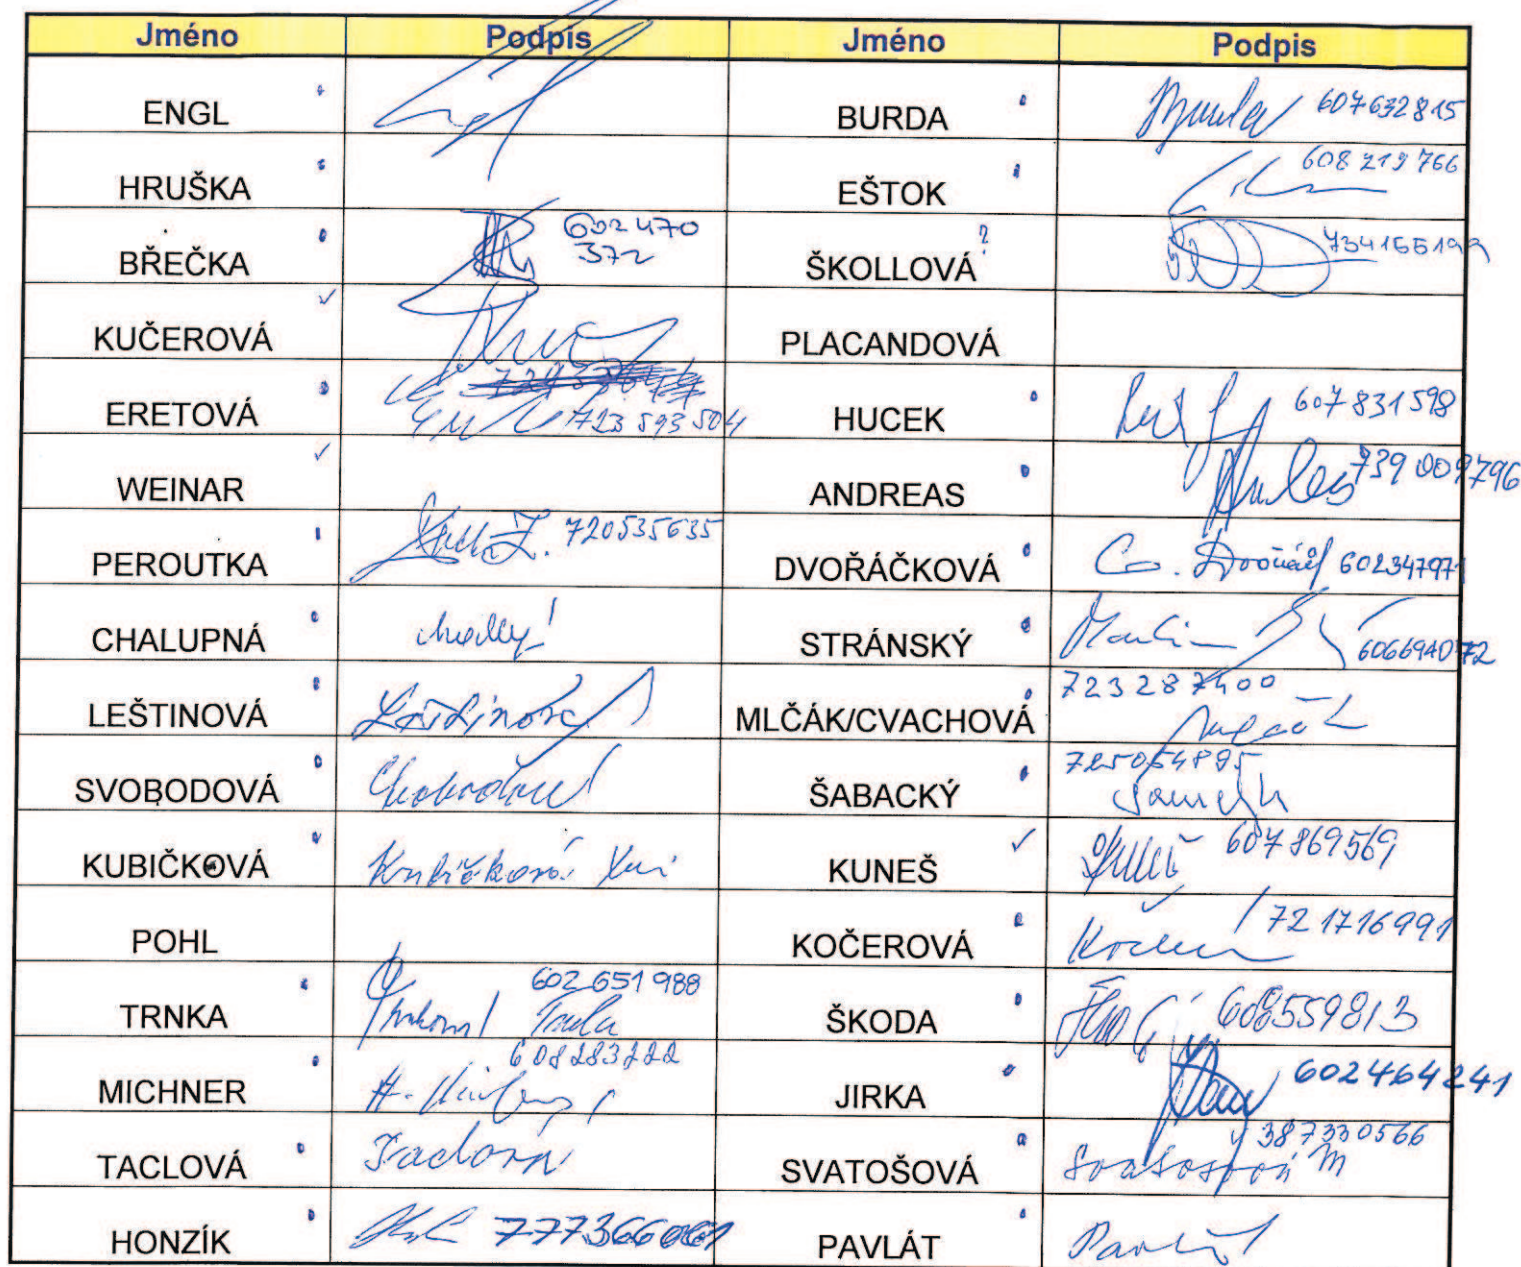 Jméno Podpis Jméno Podpis
ENGL BURDA 607632815
HRUŠKA EŠTOK 608219766
BŘEČKA 602470 ŠKOLLOVÁ ?
372
KUČEROVÁ ✓ PLACANDOVÁ
ERETOVÁ 723593504 HUCEK 607831598
WEINAR ✓ ANDREAS 739009796
PEROUTKA 720535635 DVOŘÁČKOVÁ 602347971
CHALUPNÁ STRÁNSKÝ Martin 606694072
LEŠTINOVÁ Leštinová MLČÁK/CVACHOVÁ 723287400
SVOBODOVÁ ŠABACKÝ 725054895
KUBIČKOVÁ Kubičková KUNEŠ ✓ 607869569
POHL KOČEROVÁ 721716991
TRNKA 602651988 ŠKODA 608559813
MICHNER 608283222 JIRKA 602464241
TACLOVÁ Taclová SVATOŠOVÁ 387330566
Svatošová M
HONZÍK PAVLÁT Pavlát